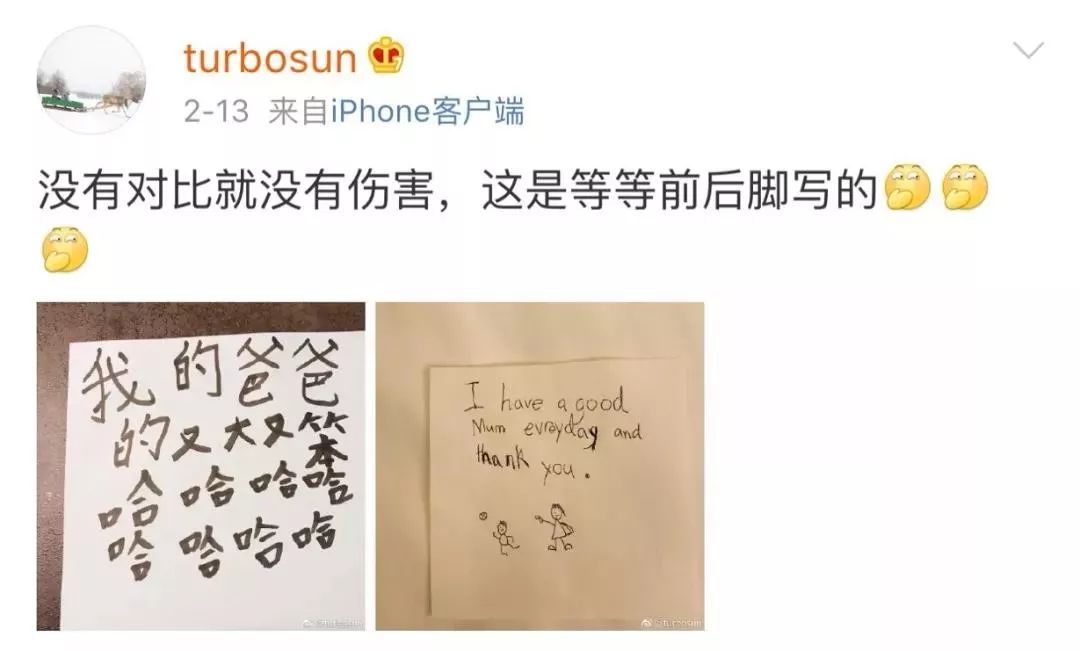 turbosun
2-13 来自iPhone客户端
没有对比就没有伤害，这是等等前后脚写的
我的爸爸
的又大又笨
哈哈哈哈
哈哈哈哈
@turbosun
I have a good
Mum evreyday and
thank you.
@turbosun